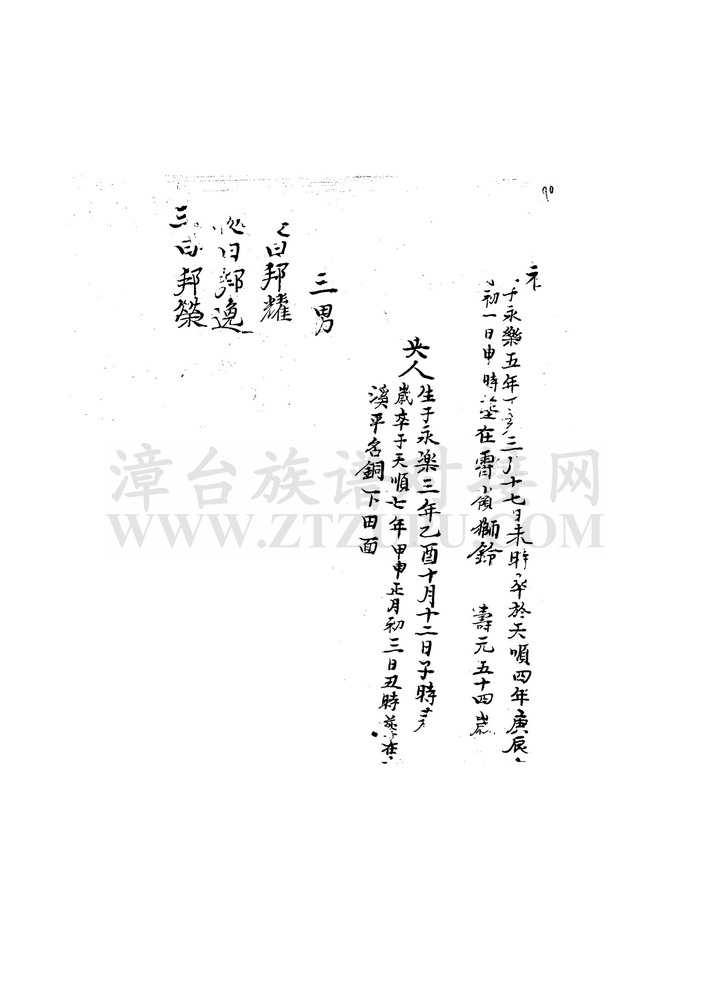 90
于永樂五年丁亥三月十七日未時卒於天順四年庚辰
初一日申時塟在霄嶺獅鈴 壽元五十四歲
央人生于永樂三年乙酉十月十二日子時
歲卒于天順七年甲申正月初三日丑時塟在
溪平名銅下田面
三男
曰邦耀
曰邦逸
三曰邦榮
漳台族谱对接网
WWW.ZTZUPU.COM